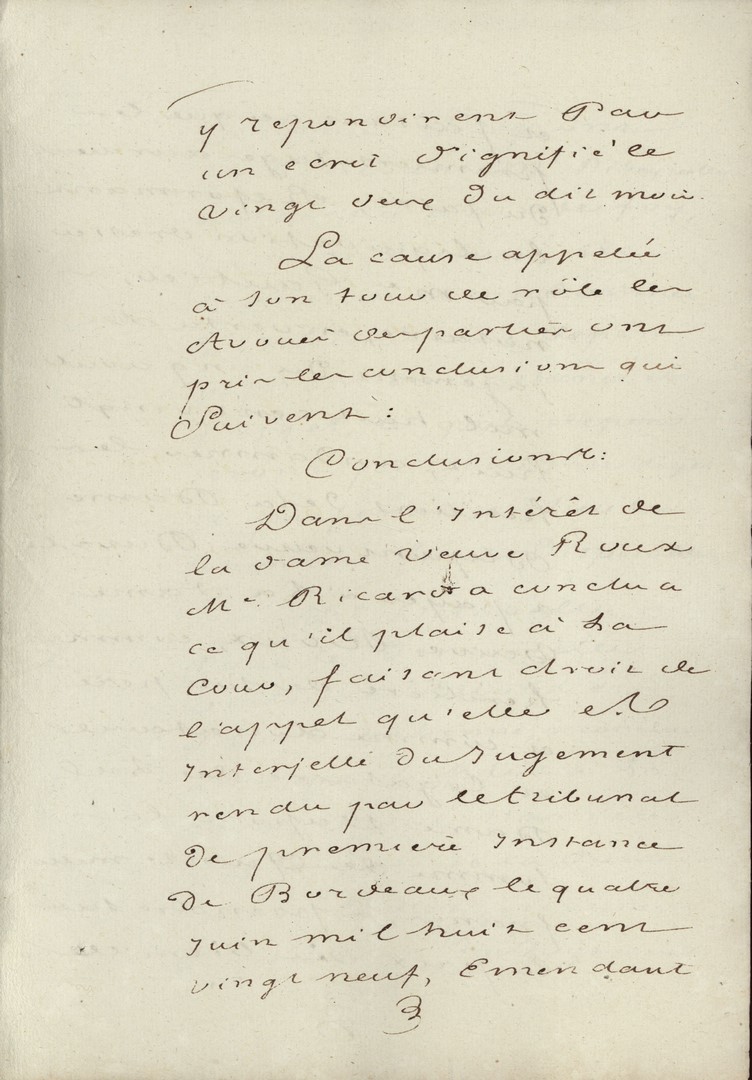 y repondirent Par
un ecrit signifié le
vingt deux du dit mois.
La cause appelée
à son tour de rôle les
Avoués des parties ont
pris les conclusions qui
Suivent :
Conclusions :
Dans l'Intérêt de
la dame veuve Roux
Me Ricard a conclu a
ce qu'il plaise à La
Cour, faisant droit de
l'appel qu'elle a
Interjetté du Jugement
rendu par le tribunal
de premiere Instance
de Bordeaux le quatre
Juin mil huit cent
vingt neuf, Emendant
3